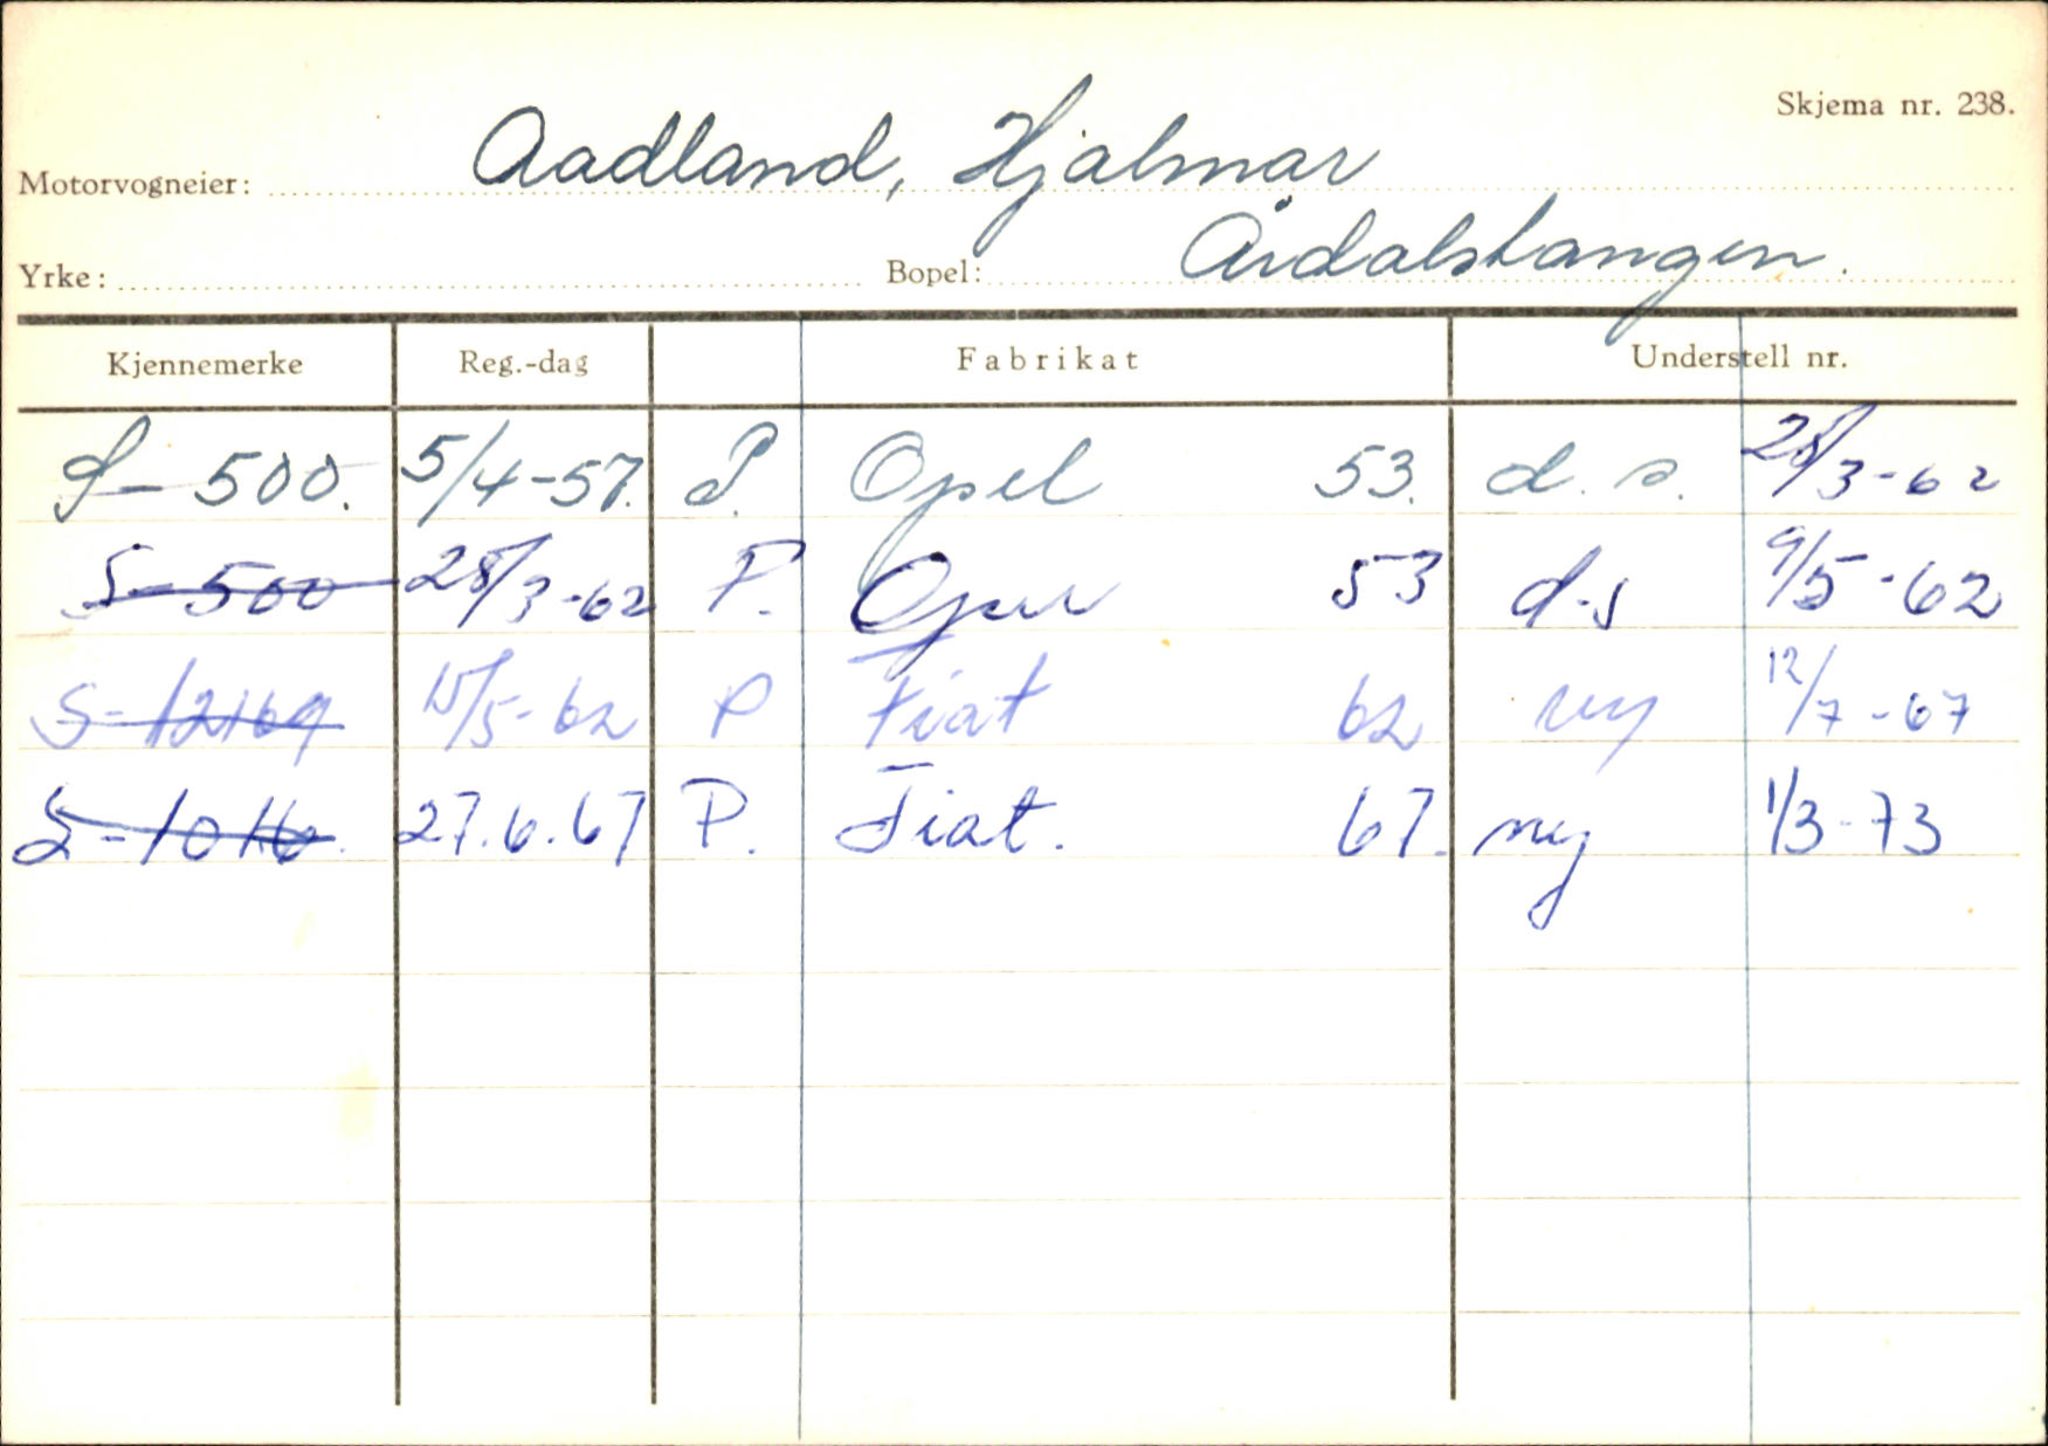 Skjema nr. 238.
Motorvogneier: Aadland, Hjalmar
Yrke: Bopel: Årdalstangen.
Kjennemerke Reg.-dag Fabrikat Understell nr.
S-500. 5/4-57. P. Opel 53. d.s. 28/3-62
S-500 28/3-62 P. Opel 53 d-s 9/5-62
S-12169 15/5-62 P Fiat 62 ny 12/7-67
S-1016. 27.6.67 P. Fiat. 67. ny 1/3-73